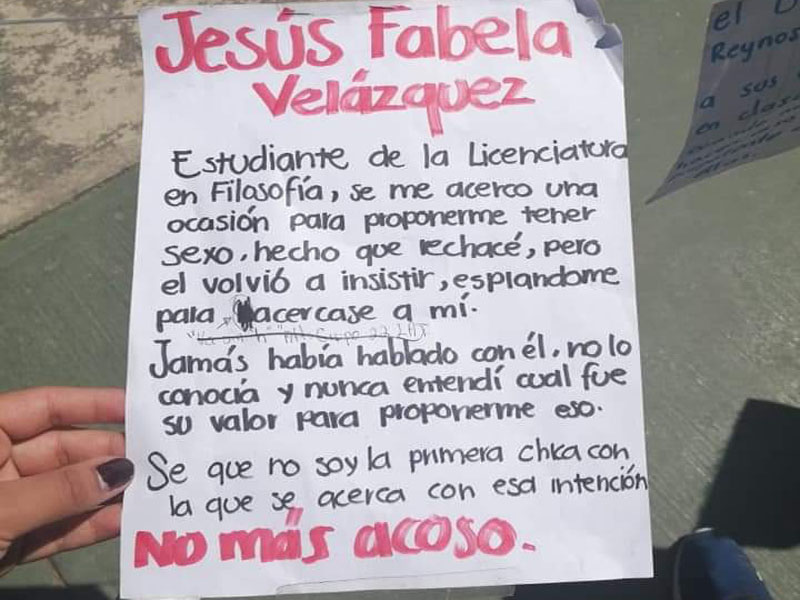 Jesús Fabela
Velázquez
Estudiante de la Licenciatura
en Filosofía, se me acerco una
ocasión para proponerme tener
sexo, hecho que rechacé, pero
el volvió a insistir, esplandome
para acercase a mí.
Jamás había hablado con él, no lo
conocía y nunca entendí cual fue
su valor para proponerme eso.
Se que no soy la primera chica con
la que se acerca con esa intención
No más acoso.
el
Reynos
a sus
en clase